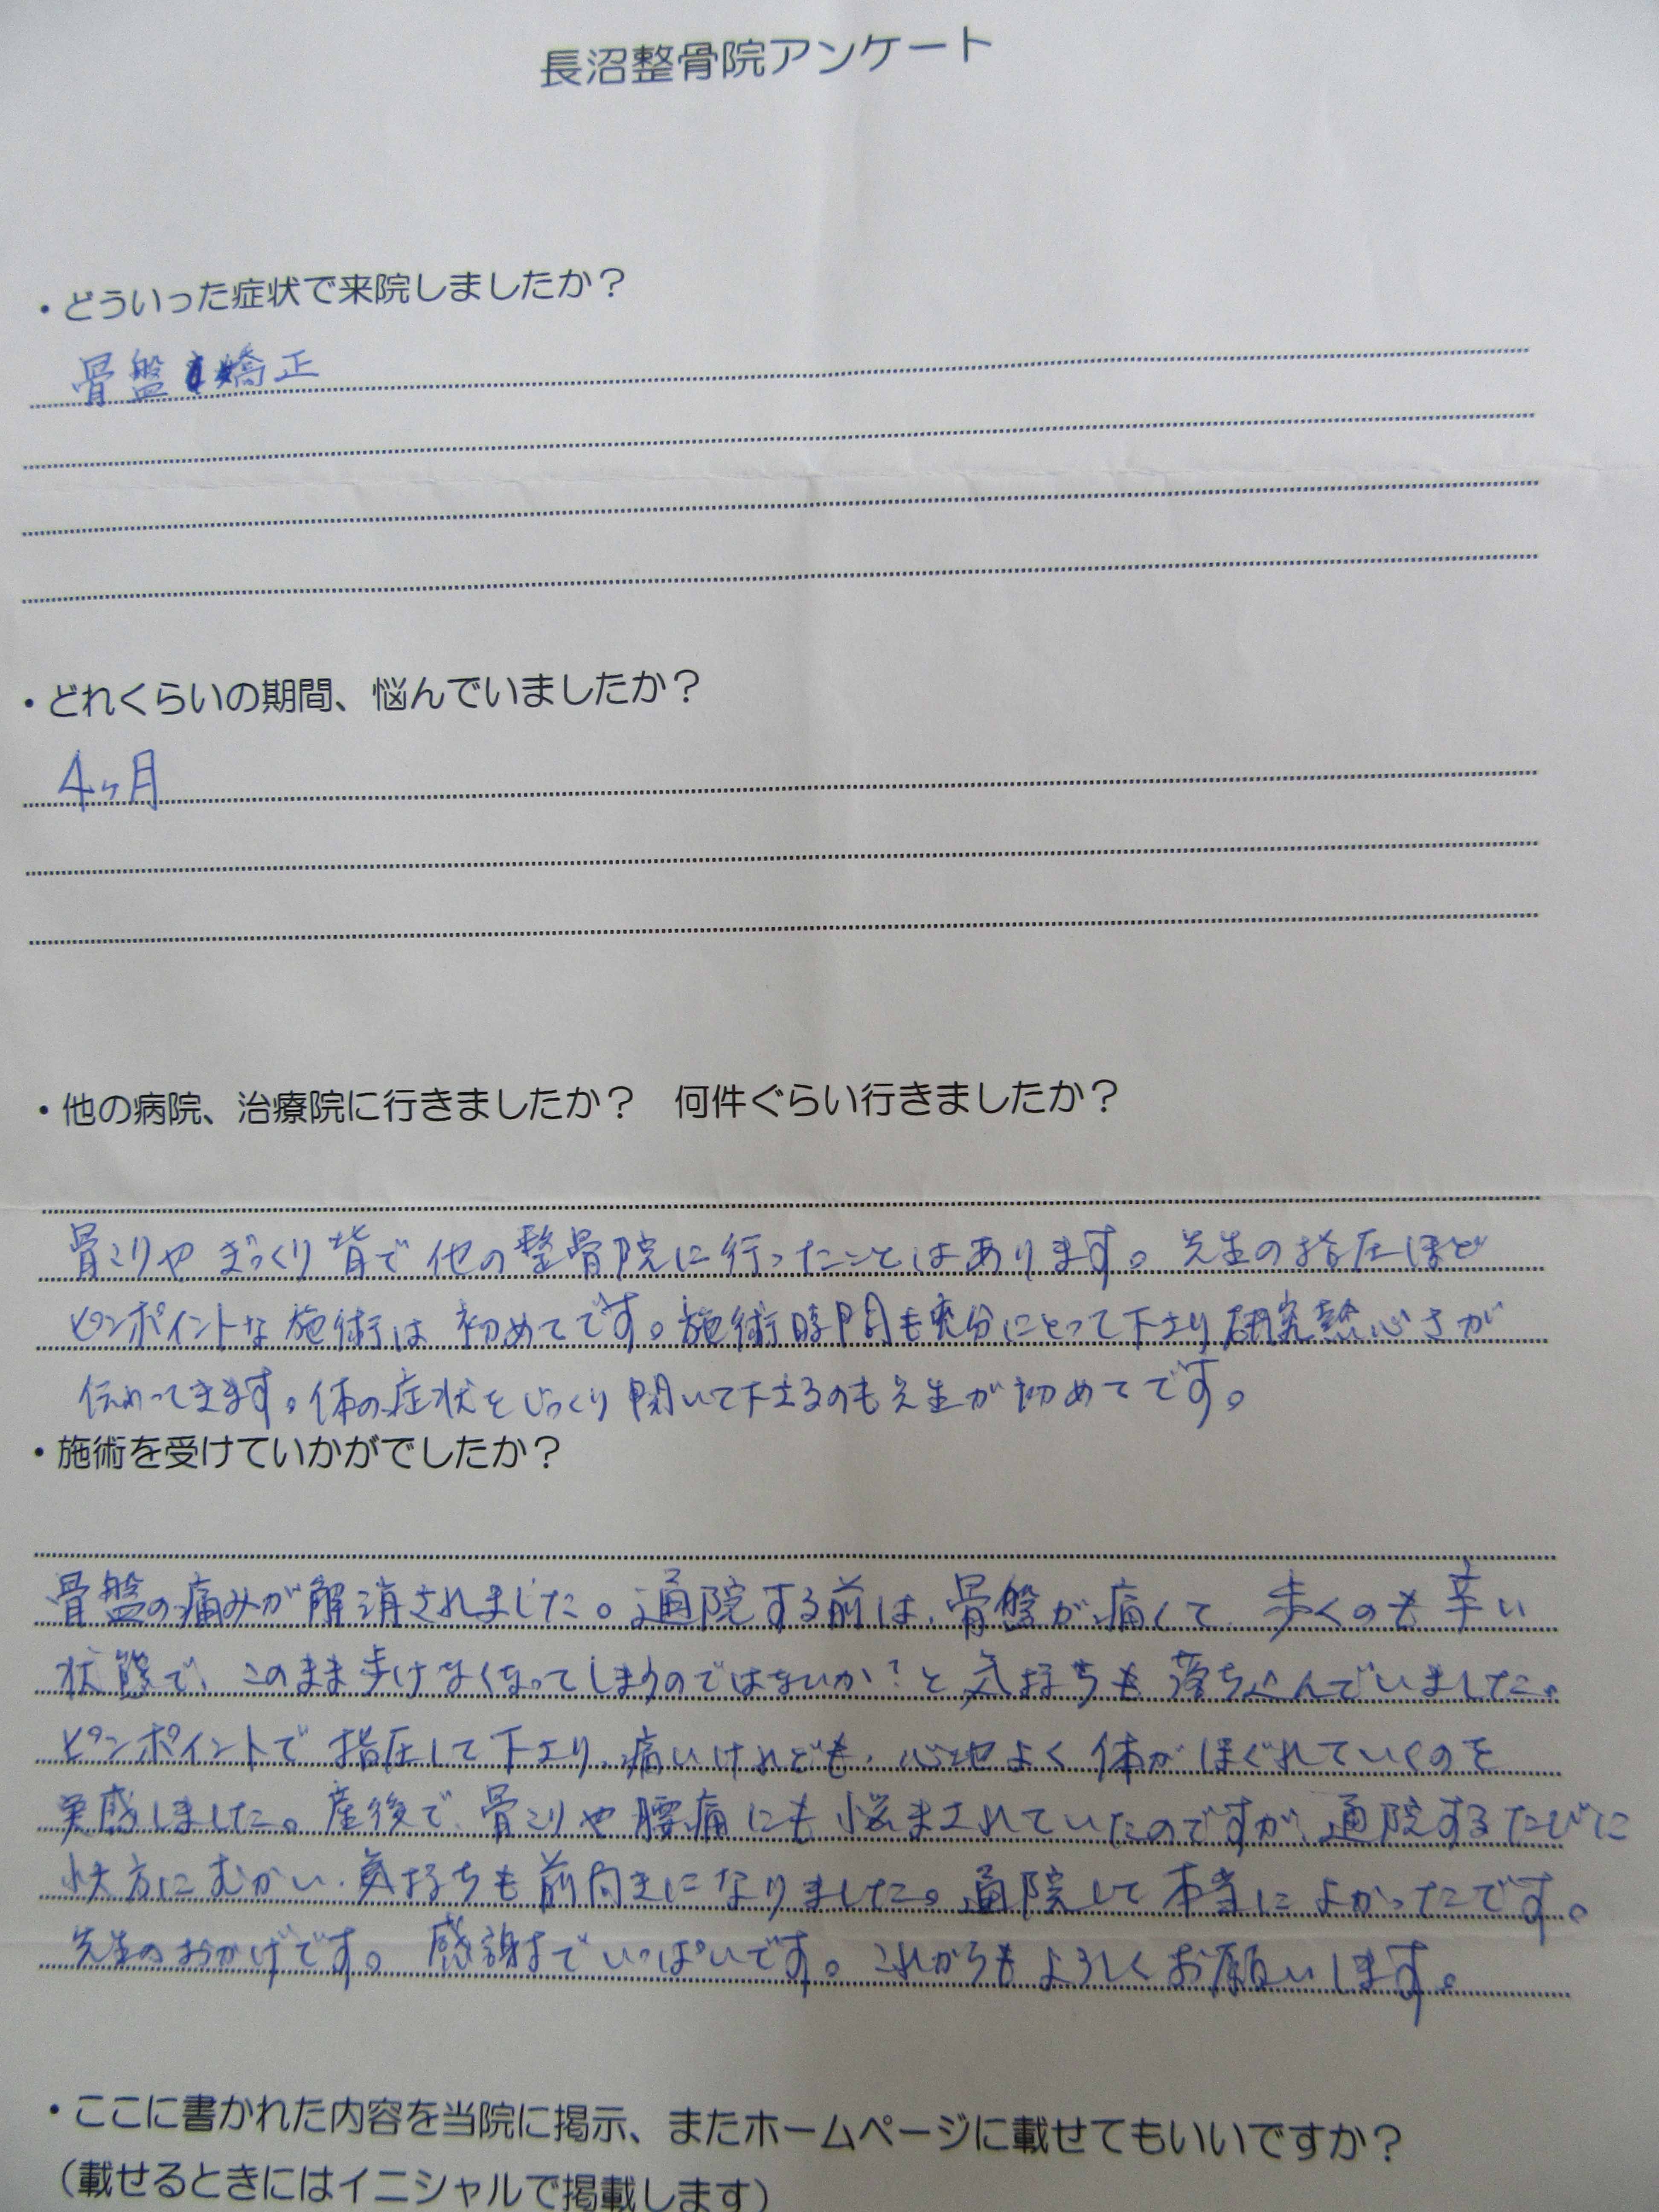 長沼整骨院アンケート
・どういった症状で来院しましたか？
骨盤矯正
・どれくらいの期間、悩んでいましたか？
4ヶ月
・他の病院、治療院に行きましたか？　何件ぐらい行きましたか？
骨こりやぎっくり背で他の整骨院に行ったことはあります。先生の指圧ほど
ピンポイントな施術は初めてです。施術時間も充分にとって下さり研究熱心さが
伝わってきます。体の症状をじっくり聞いて下さるのも先生が初めてです。
・施術を受けていかがでしたか？
骨盤の痛みが解消されました。通院する前は、骨盤が痛くて、歩くのも辛い
状態で、このまま歩けなくなってしまうのではないか？と気持ちも落ち込んでいました。
ピンポイントで指圧して下さり、痛いけれども、心地よく体がほぐれていくのを
実感しました。産後で、骨こりや腰痛にも悩まされていたのですが、通院するたびに
快方にむかい、気持ちも前向きになりました。通院して本当によかったです。
先生のおかげです。感謝でいっぱいです。これからもよろしくお願いします。
・ここに書かれた内容を当院に掲示、またホームページに載せてもいいですか？
（載せるときにはイニシャルで掲載します）